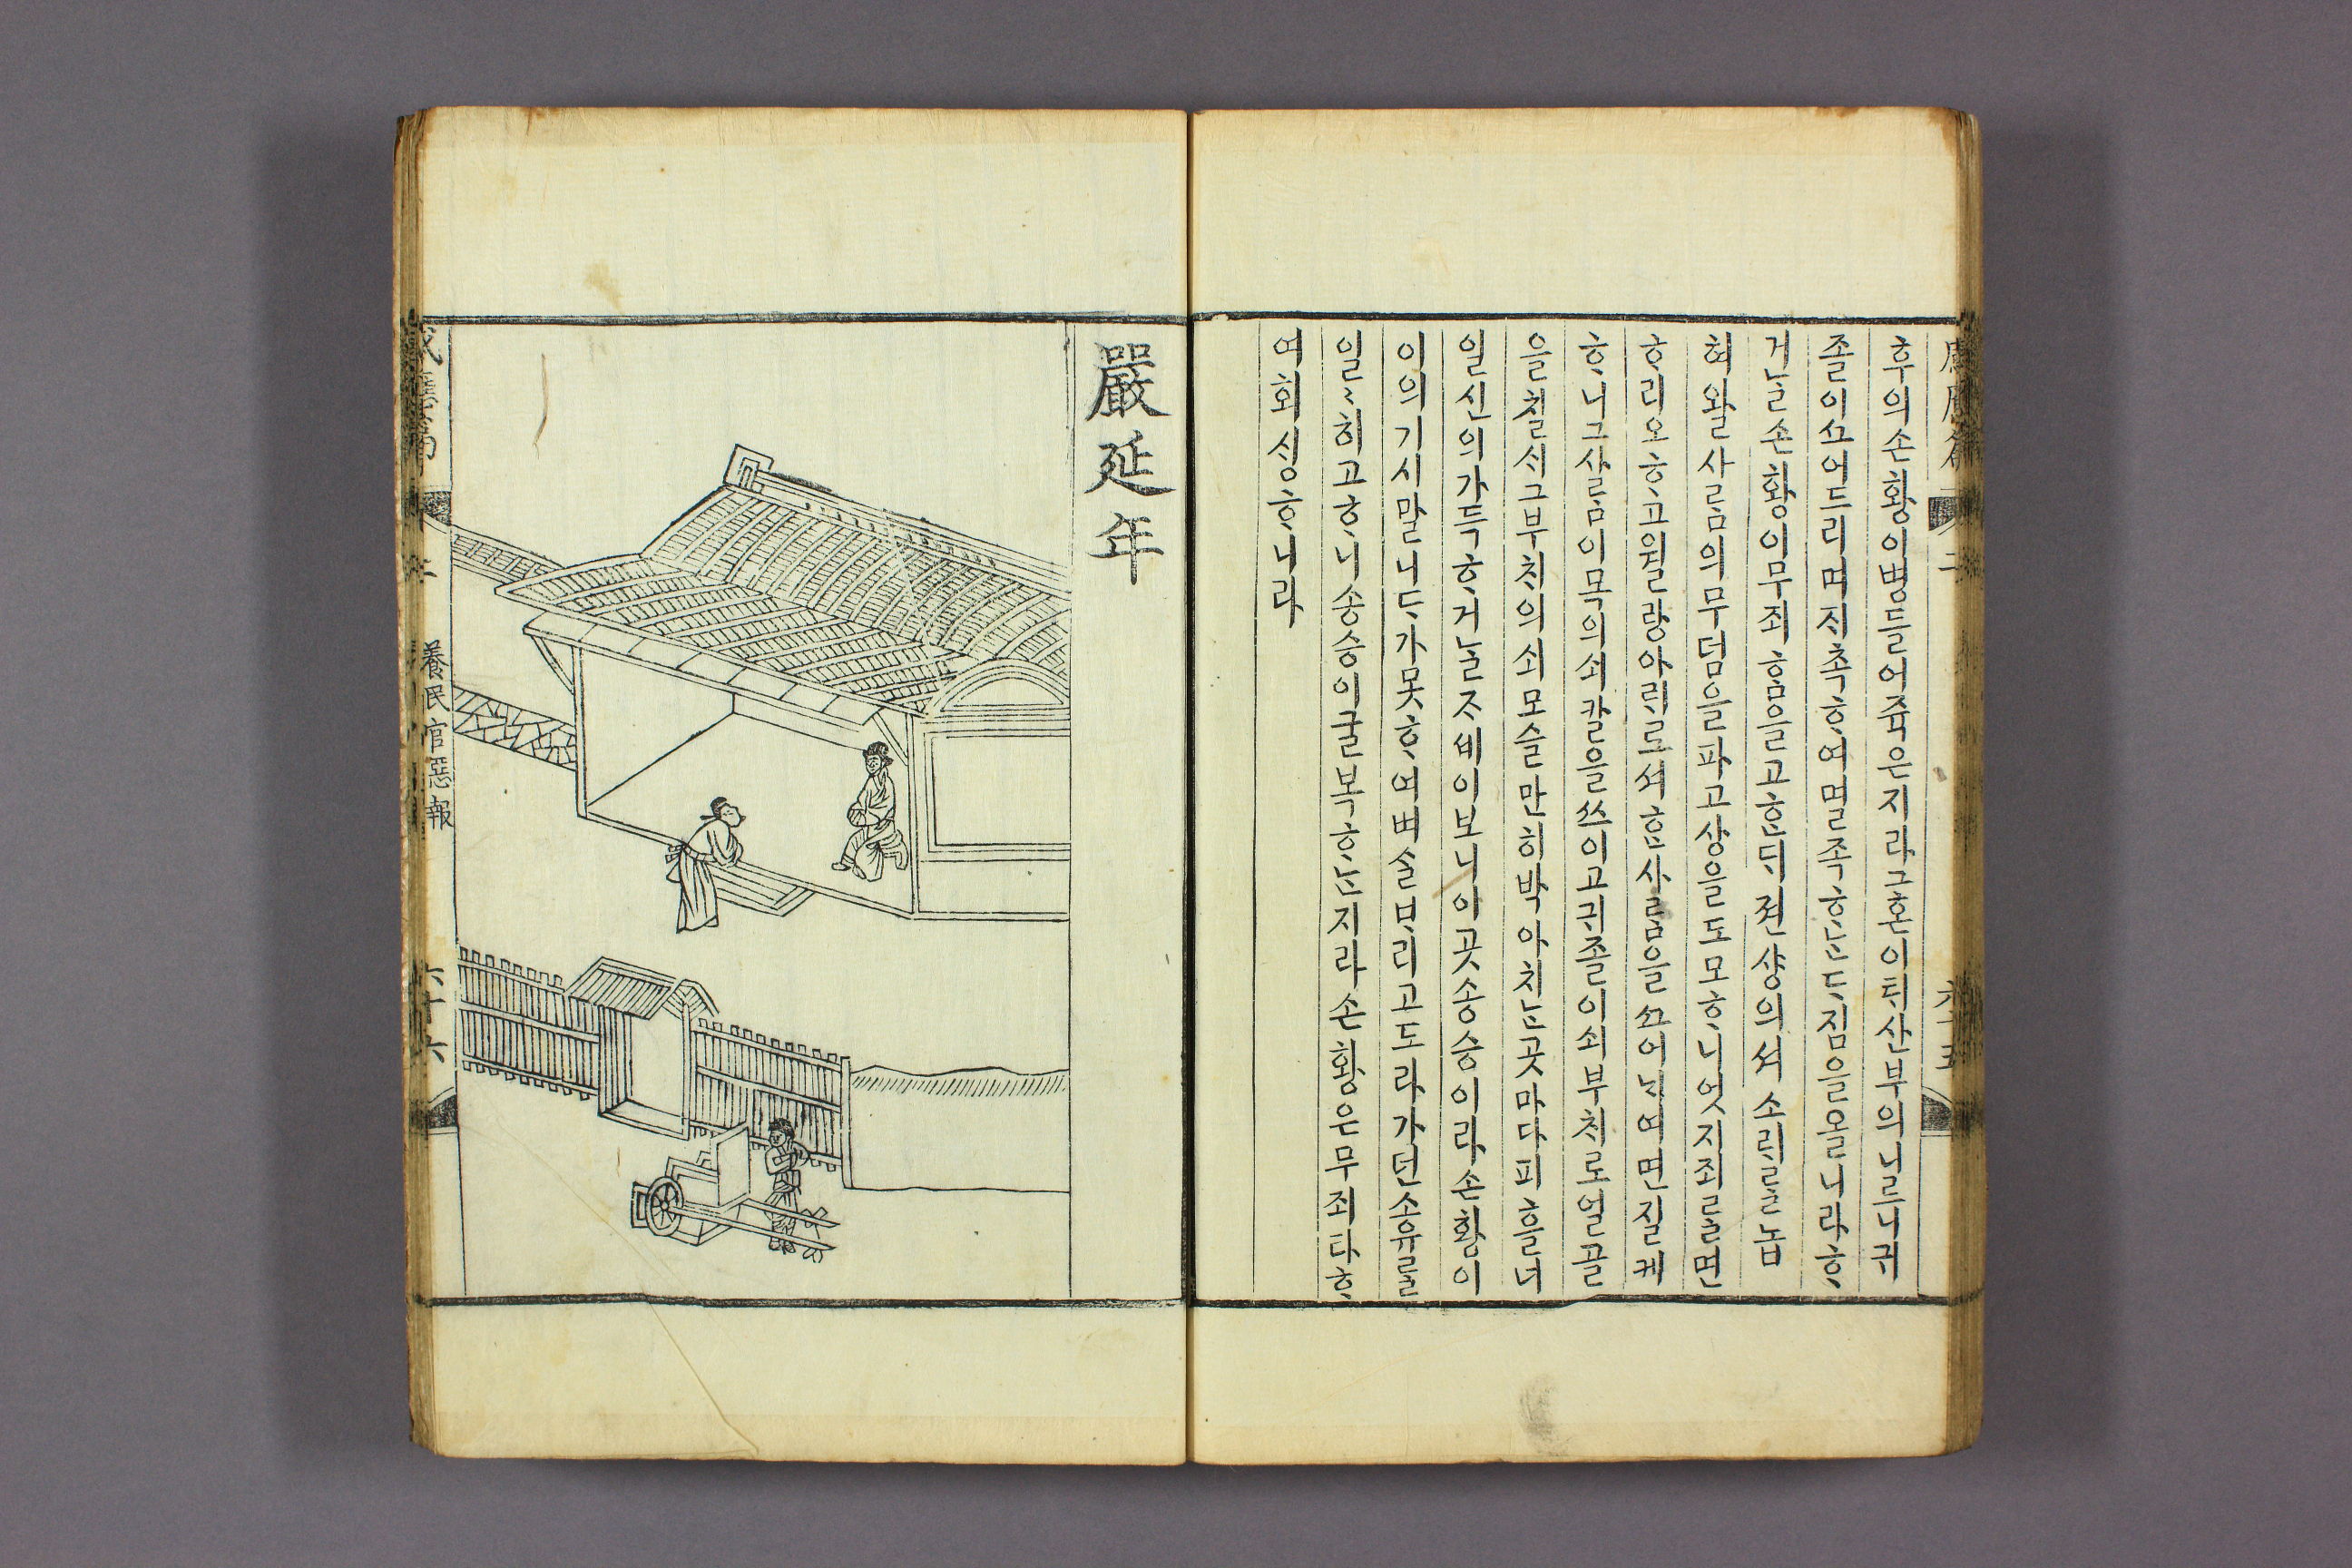 感應篇 二 六十五
후의손황이병들어쥭은지라그혼이ᄐᆡ산부의니르니귀
졸이ᄭᅳ어드리며ᄌᆡ촉ᄒᆞ여멸족ᄒᆞᄂᆞᆫᄃᆞ짐을올니라ᄒᆞ
거ᄂᆞᆯ손황이무죄ᄒᆞᆷ을고ᄒᆞᆫᄃᆡ젼샹의셔소ᄅᆡᄅᆞᆯ놉
혀왈사ᄅᆞᆷ의무덤을파고샹을도모ᄒᆞ니엇지죄ᄅᆞᆯ면
ᄒᆞ리오ᄒᆞ고월랑아ᄅᆡ로셔ᄒᆞᆫ사ᄅᆞᆷ을ᄭᅳ어ᄂᆡ여면질케
ᄒᆞ니그사ᄅᆞᆷ이목의쇠칼을쓰이고귀졸이쇠부쳐로얼골
을칠ᄉᆡ그부쳐의쇠모슬만히박아치ᄂᆞᆫ곳마다피흘너
일신의가득ᄒᆞ거ᄂᆞᆯᄌᆞ셰이보니이곳송승이라손황이
이의기시말니ᄃᆞ가못ᄒᆞ여벼슬ᄇᆞ리고도라가던소유ᄅᆞᆯ
일〻히고ᄒᆞ니송승이굴복ᄒᆞᄂᆞᆫ지라손황은무죄타ᄒᆞ
여회ᄉᆡᆼᄒᆞ니라
嚴延年
感應篇 二 養民官惡報 六十六